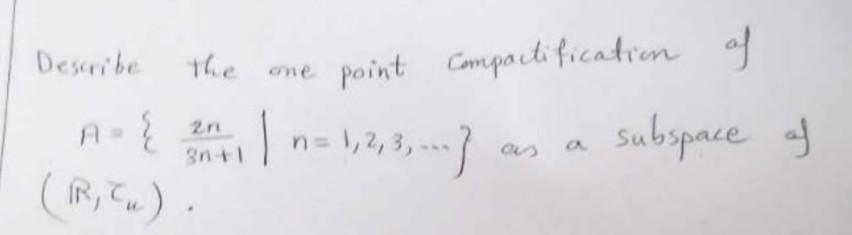 Describe the one point Compactification of
A = { 2n/3n+1 | n = 1,2,3,... } as a subspace of
(ℝ, τ_u).